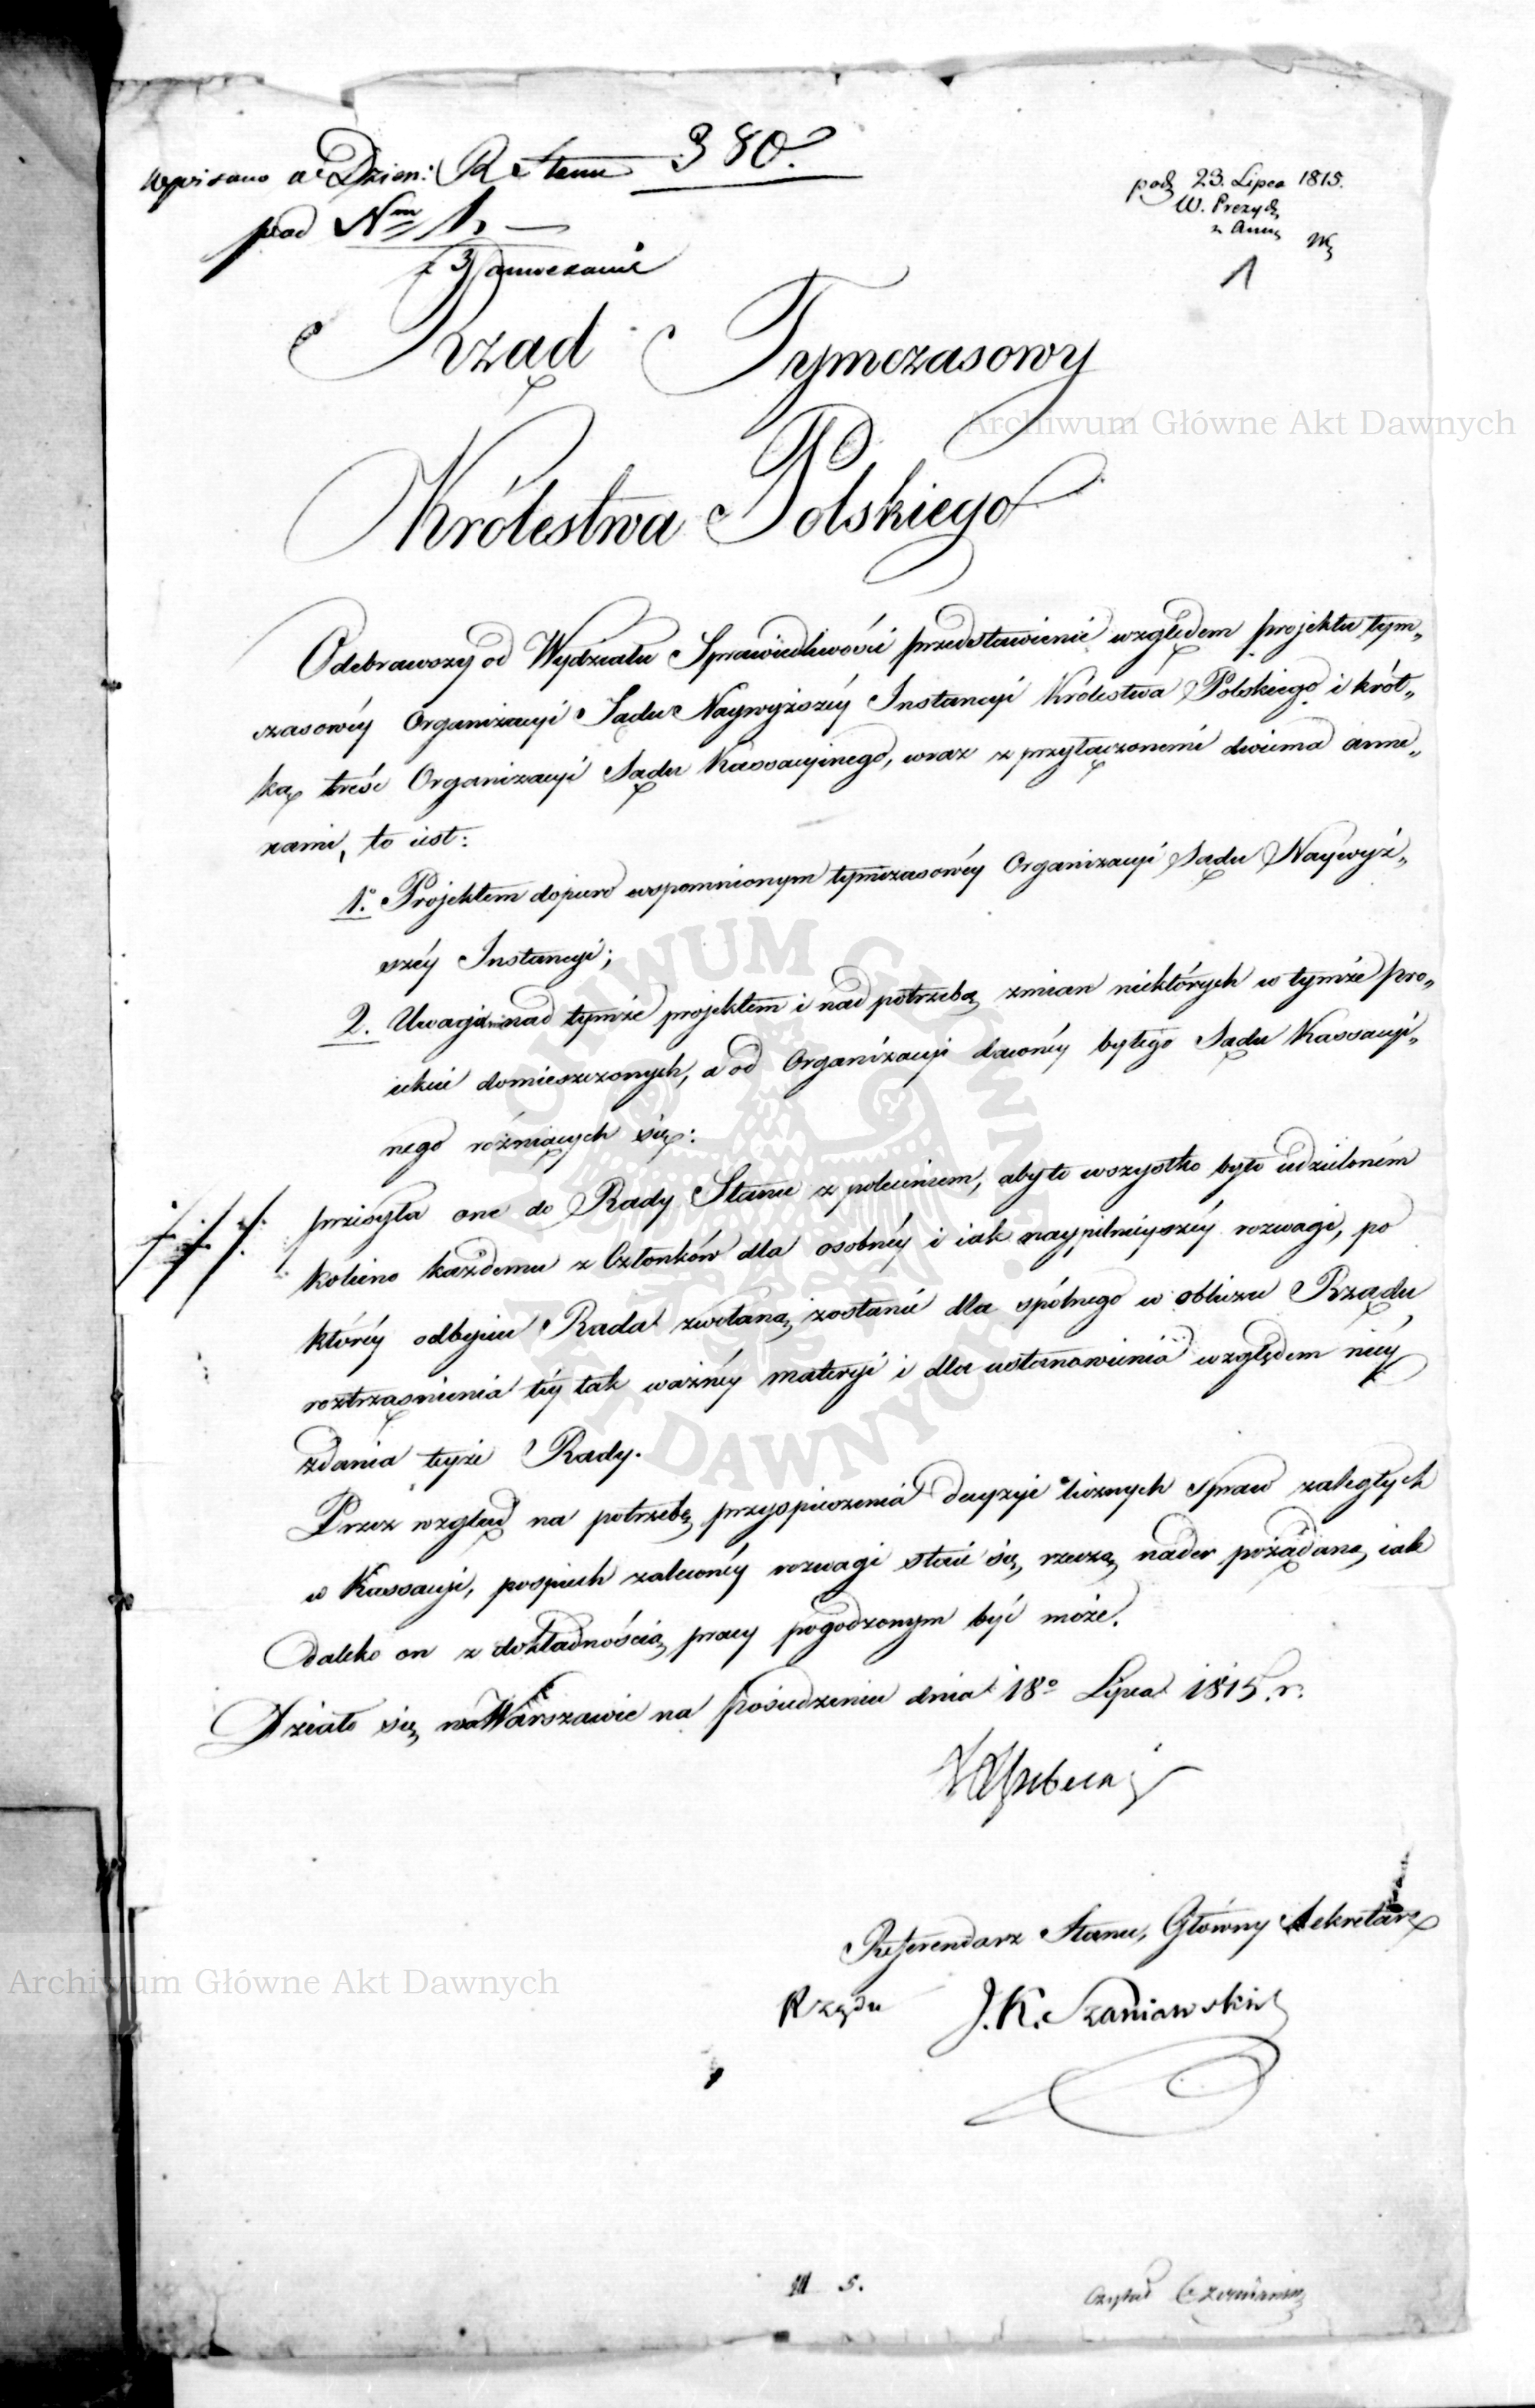 Wpisano w Dzien: R. Stanu 380.
pod Nrm 1. —
z 3 Panowanie
pod 23. Lipca 1815.
W. Prezyd.
z Ann
1
Rząd Tymczasowy
Królestwa Polskiego
Odebrawszy od Wydziału Sprawiedliwości przedstawienie względem projektu tym„
czasowéy Organizacyi Sądu Naywyższéy Instancyi Królestwa Polskiego i krót„
ką treść Organizacyi Sądu Kassacyinego, wraz z przyłączonemi dwiema anne„
xami, to iest:
1º. Projektem dopiero wspomnionym tymczasowéy Organizacyi Sądu Naywyż„
széy Instancyi;
2. Uwagami nad tymże projektem i nad potrzebą zmian niektórych w tymże pro„
iekcie domieszczonych, a od Organizacyi dawnéy byłego Sądu Kassacyi„
nego różniących się:
przesyła one do Rady Stanu z poleceniem, aby to wszystko było udzieloném
koleino każdemu z Członków dla osobnéy i iak naypilnieyszéy rozwagi, po
któréy odbyciu Rada zwołaną zostanie dla spólnego w obliczu Rządu
roztrząśnienia téy tak ważnéy materyi i dla ustanowienia względem niéy
zdania teyże Rady.
Przez wzgląd na potrzebę przyspieszenia decyzyi licznych spraw zaległych
w Kassacyi, pospiech zaleconéy rozwagi staie się rzeczą nader pożądaną, iak
daleko on z dokładnością pracy pogodzonym być może.
Działo się w Warszawie na posiedzeniu dnia 18º Lipca 1815. r.
Referendarz Stanu, Główny Sekretarz
Rządu J. K. Szaniawski
5.
Czytał
Archiwum Główne Akt Dawnych
ARCHIWUM GŁÓWNE AKT DAWNYCH
Archiwum Główne Akt Dawnych